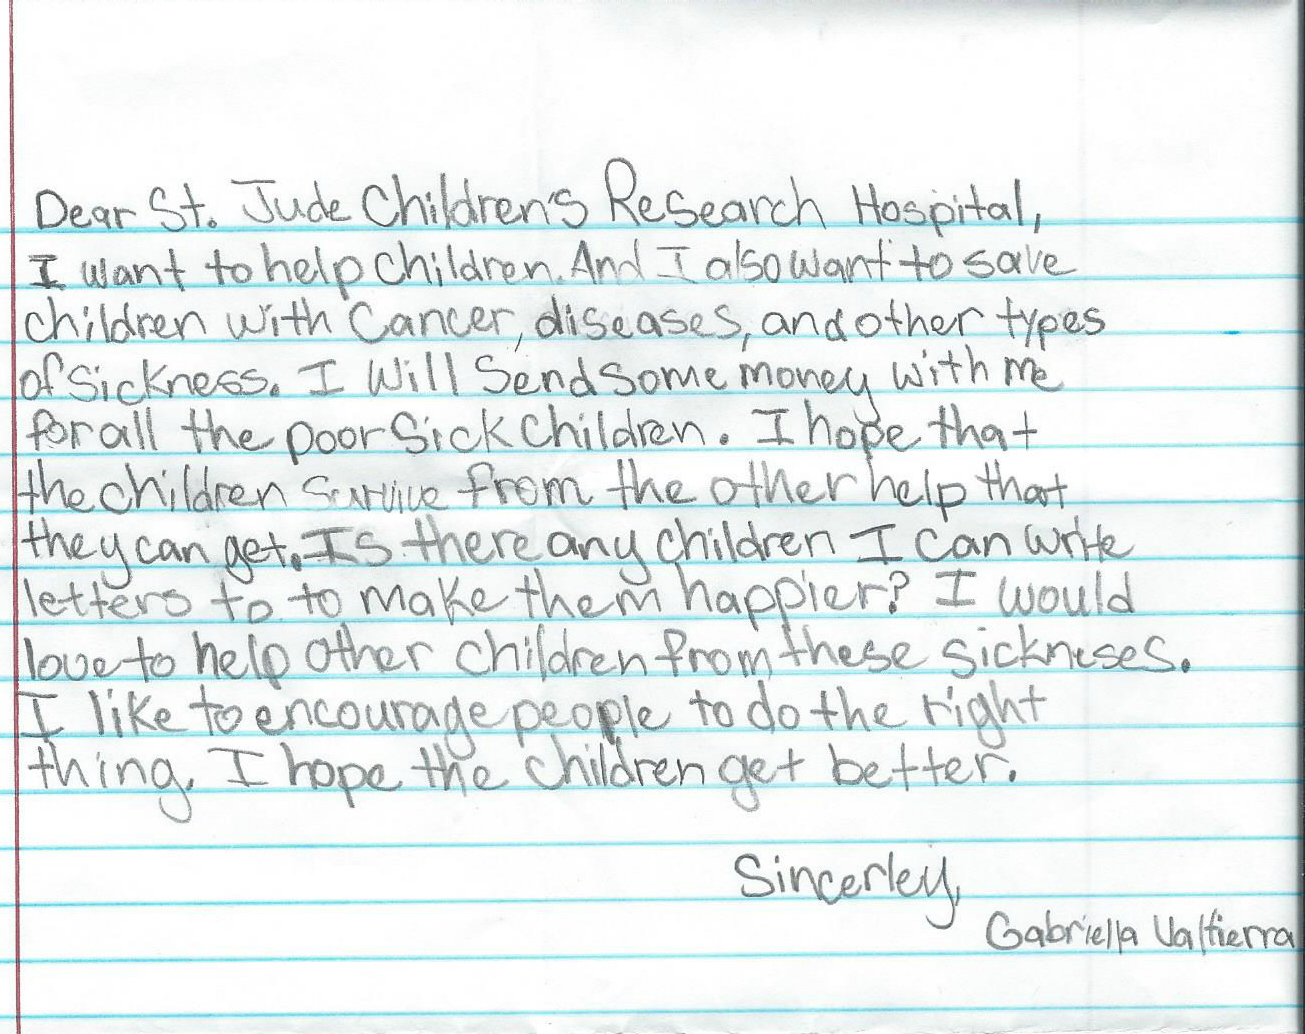 Dear St. Jude Children's Research Hospital,
I want to help children. And I also want to save
children with Cancer, diseases, and other types
of sickness. I will send some money with me
for all the poor sick children. I hope that
the children survive from the other help that
they can get. Is there any children I can write
letters to to make them happier? I would
love to help other children from these sickneses.
I like to encourage people to do the right
thing. I hope the children get better.
Sincerley,
Gabriella Valtierra